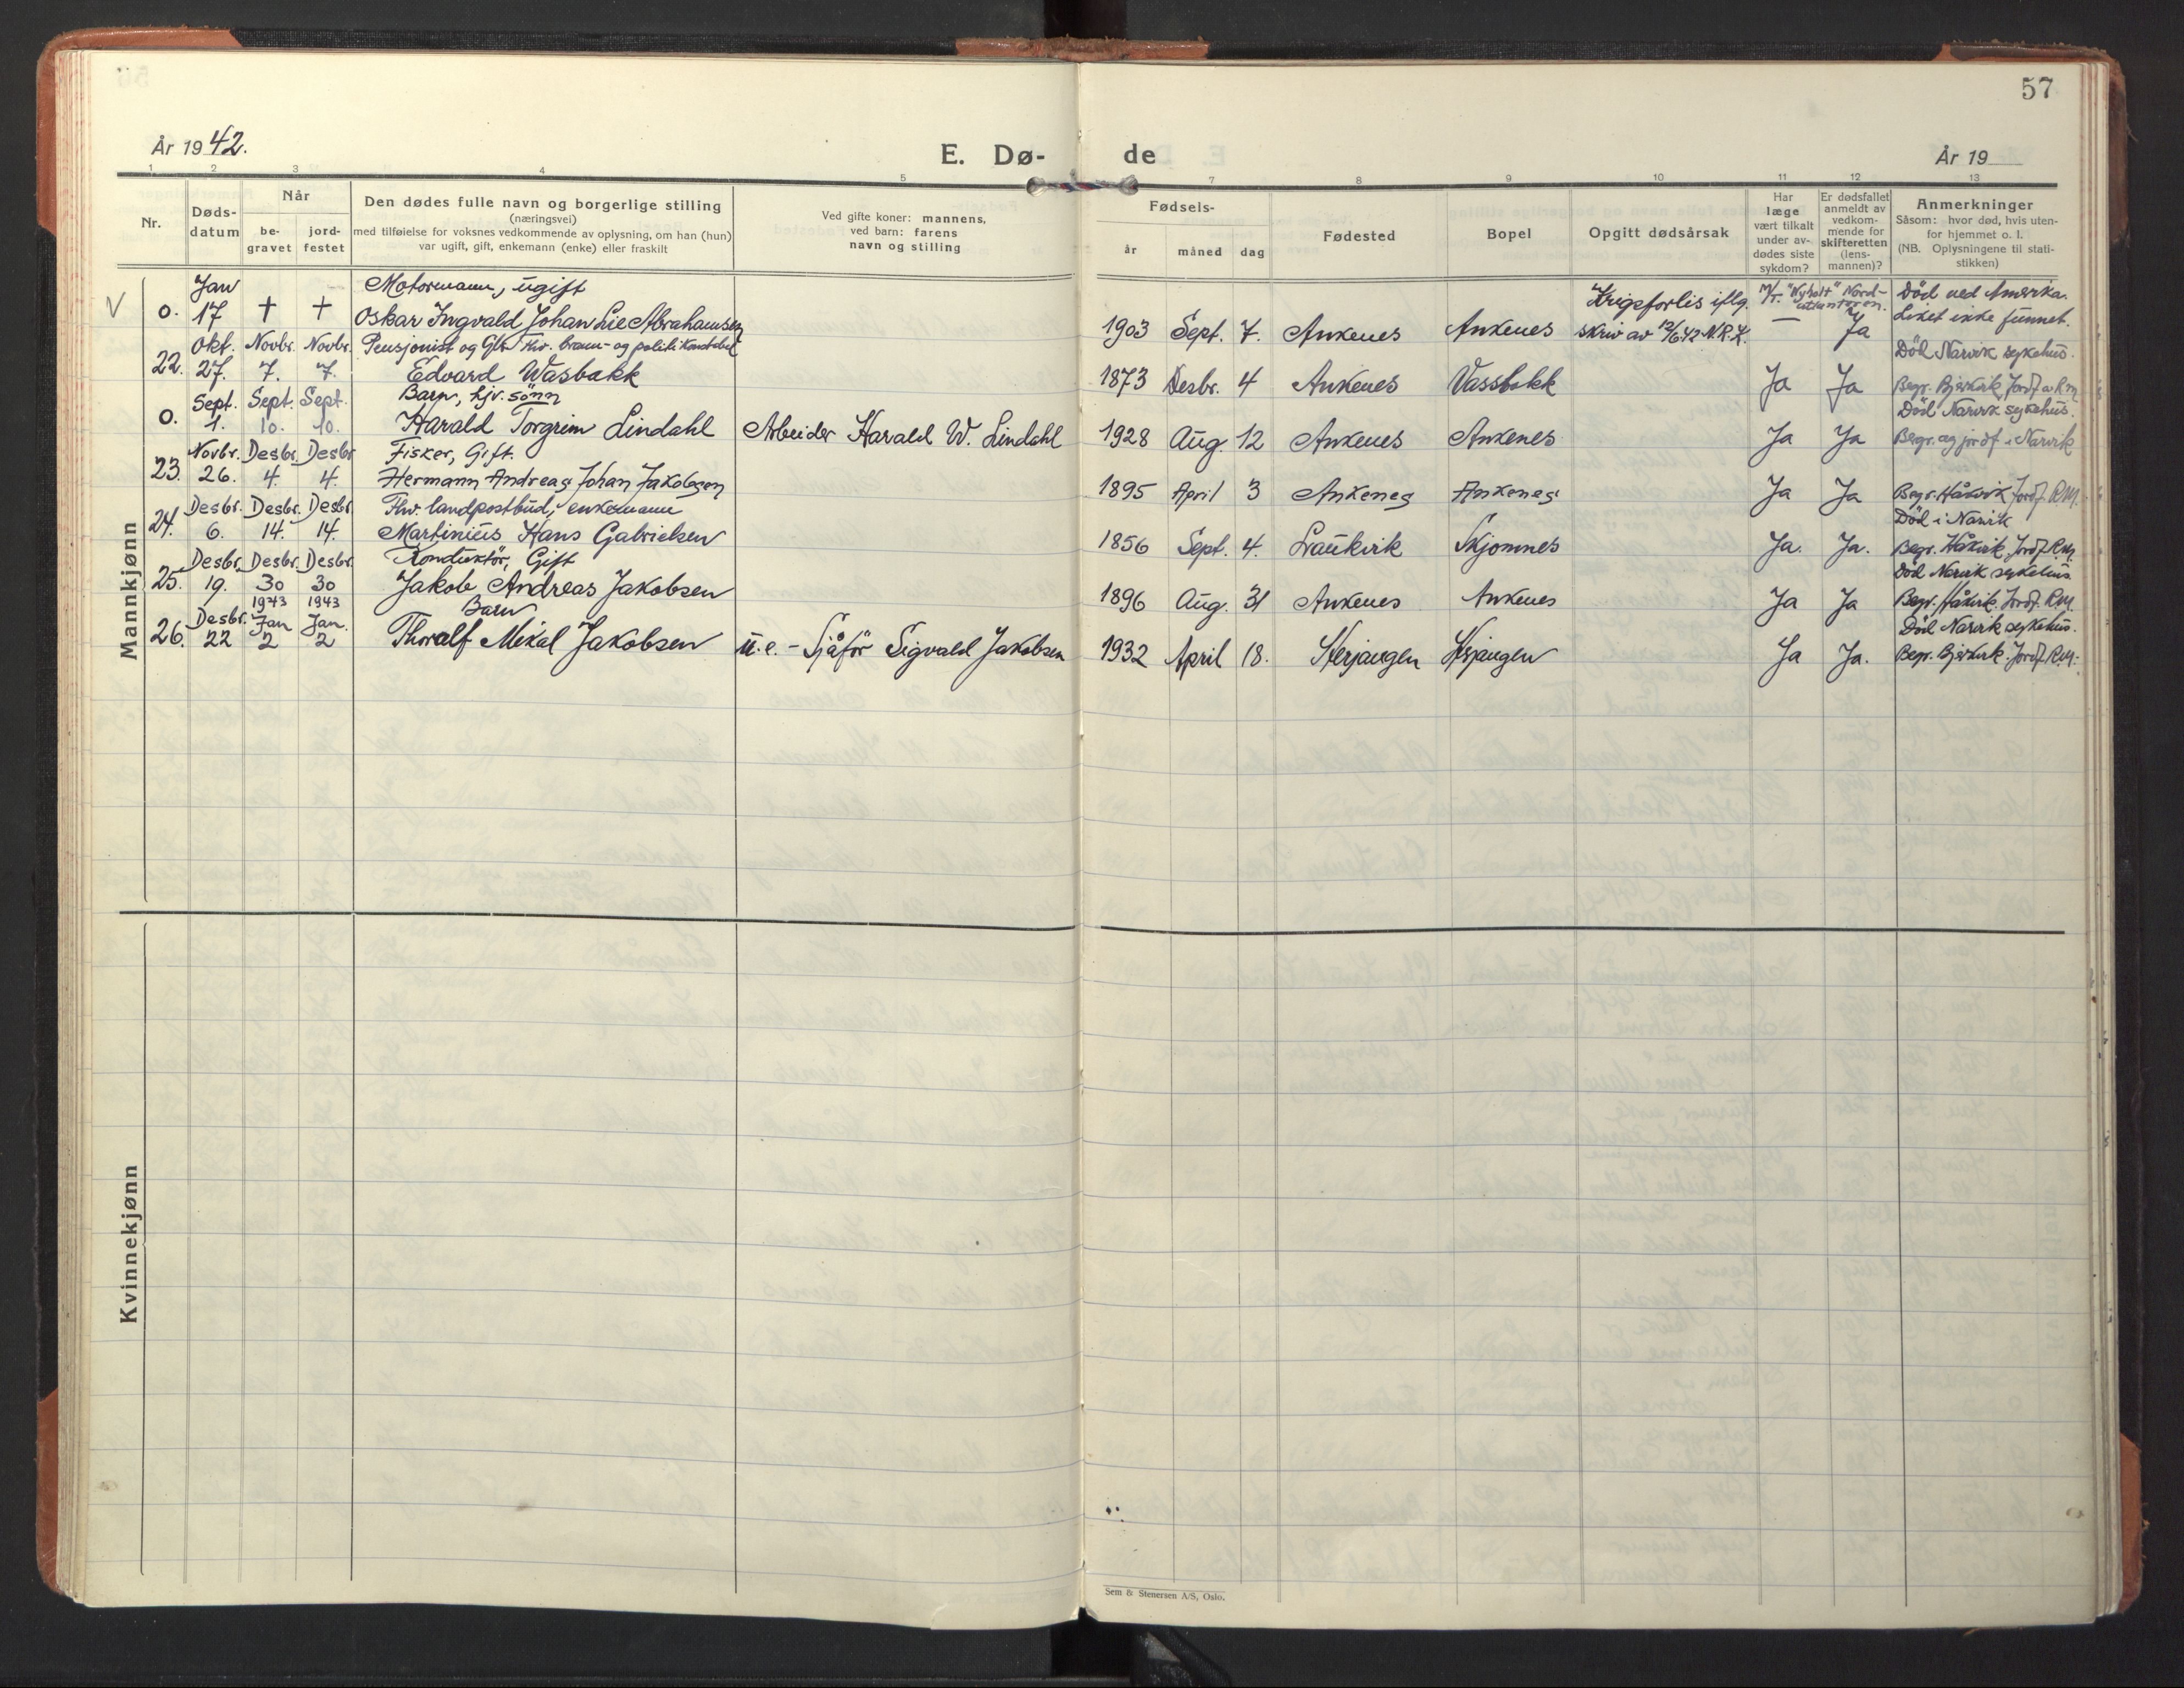 57
År 1942.
E. Dø- de
År 19
1 2 3 4 5 7 8 9 10 11 12 13
Nr.
Døds-
datum
Når
be-
gravet
jord-
festet
Den dødes fulle navn og borgerlige stilling
(næringsvei)
med tilføielse for voksnes vedkommende av oplysning, om han (hun)
var ugift, gift, enkemann (enke) eller fraskilt
Ved gifte koner: mannens,
ved barn: farens
navn og stilling
Fødsels-
år måned dag
Fødested
Bopel
Opgitt dødsårsak
Har
læge
vært tilkalt
under av-
dødes siste
sykdom?
Er dødsfallet
anmeldt av
vedkom-
mende for
skifteretten
(lens-
mannen)?
Anmerkninger
Såsom: hvor død, hvis uten-
for hjemmet o. l.
(NB. Oplysningene til stati-
stikken)
Mannkjønn
Jan Motormann, ugift Krigsforlis iflg. M/T. "Nyholt" Nord- Død ved Amerka.
atlanteren.
V 0. 17 † † Oskar Ingvald Johan Lie Abrahamsen 1903 Sept. 7. Ankenes Ankenes skriv av 12/6.42 N.R.K. — Ja Liket ikke funnet.
Okt. Novbr. Novbr. Pensjonist og Gift. Fhv. brann- og politikonstabel Død Narvik sykehus.
22. 27. 7. 7. Edvard Wasbakk 1873 Desbr. 4 Ankenes Vassbakk Ja Ja Begr. Bjerkvik, Jordf. av R.M
Sept. Sept. Sept. Barn, Ljv. sønn Død Narvik sykehus.
0. 1. 10. 10. Harald Torgrim Lindahl Arbeider Harald W. Lindahl 1928 Aug. 12 Ankenes Ankenes Ja Ja Begr. og jordf. i Narvik
Novbr. Desbr. Desbr Fisker, Gift.
23. 26. 4. 4. Hermann Andreas Johan Jakobsen 1895 April 3 Ankenes Ankenes Ja Ja Begr. Håkvik Jordf. R.M.
Desbr. Desbr. Desbr Fhv. landpostbud, enkemann Død i Narvik
24. 6. 14. 14. Martinius Hans Gabrielsen 1856 Sept. 4. Laukvik Skjomnes Ja. Ja. Begr. Håkvik. Jordf. R.M
Desbr. Desbr. Desbr Konduktör, Gift Død Narvik sykehus
25. 19. 30 30 Jakob Andreas Jakobsen 1896 Aug. 31 Ankenes Ankenes Ja Ja Begr. Håkvik. Jordf. R.M.
1943 1943
Desbr. Jan Jan. Barn Død Narvik sykehus.
26. 22 2 2 Thoralf Mikal Jakobsen u.e. - Sjåför Sigvald Jakobsen 1932 April 18. Herjangen Herjangen Ja Ja. Begr. Bjerkvik. Jordf. R.M.
Kvinnekjønn
Sem & Stenersen A/S, Oslo.